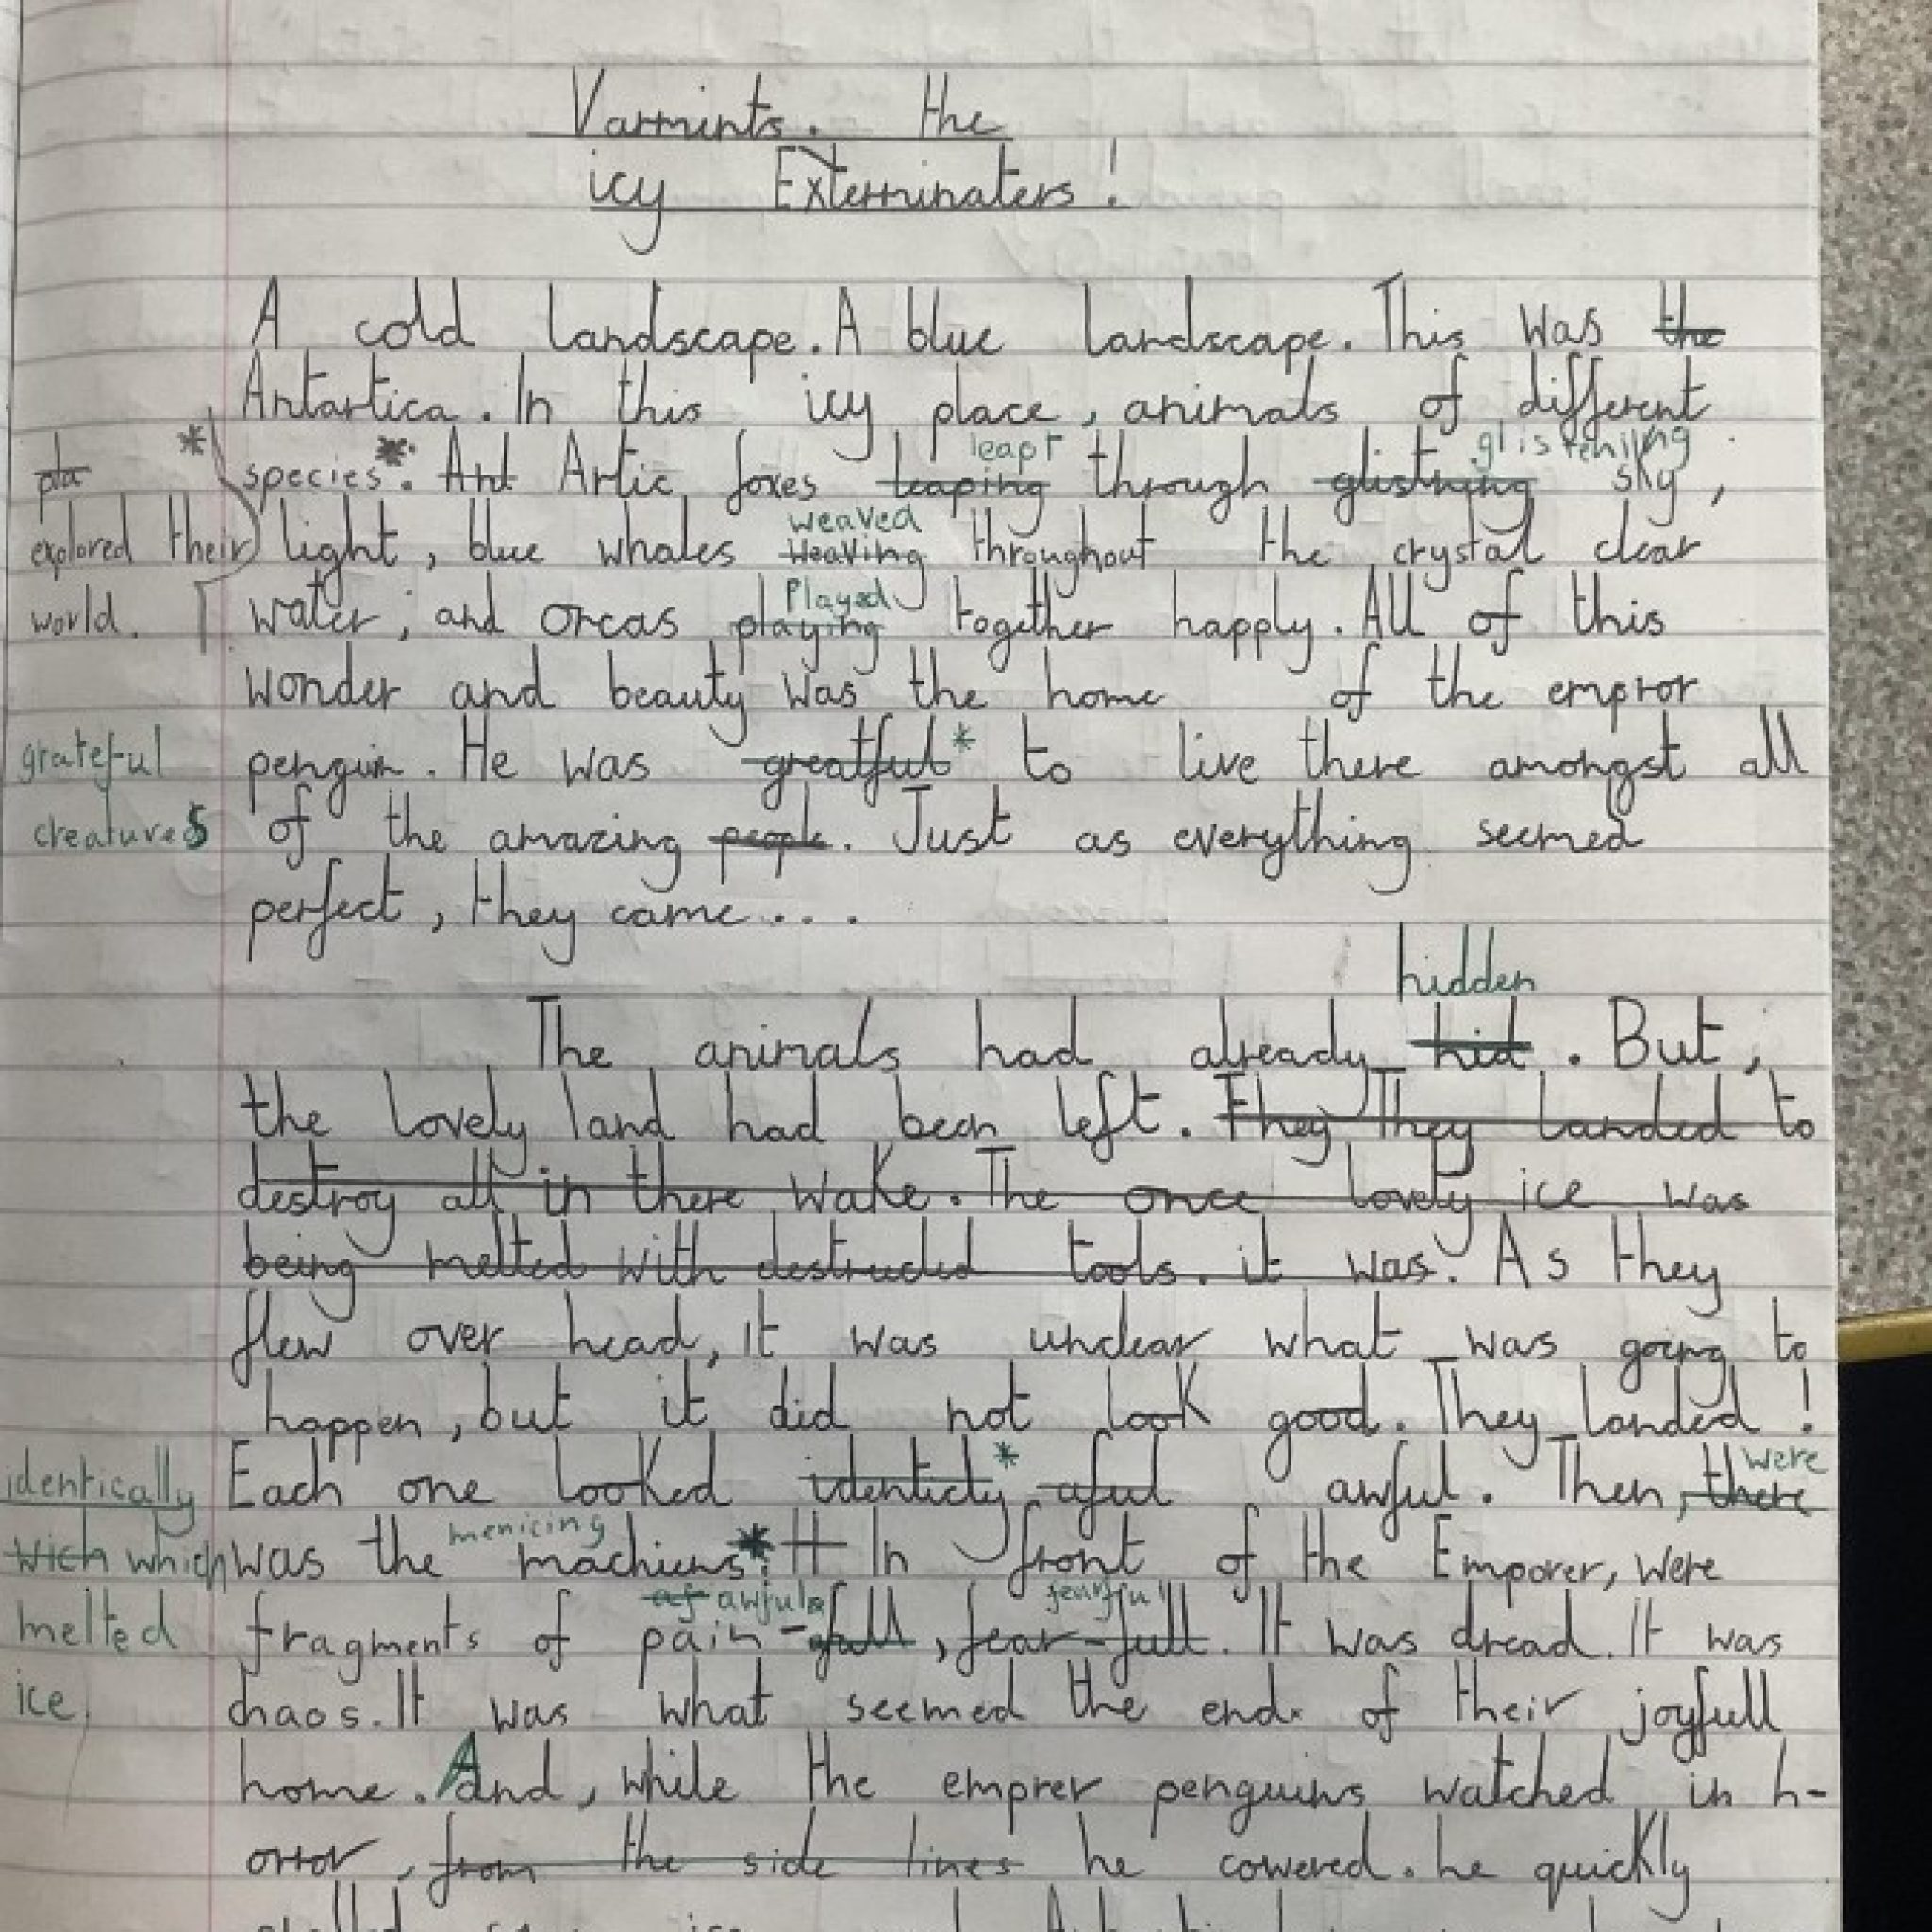 Varmints. the
icy Exterminaters!
A cold landscape. A blue landscape. This was the
Antartica. In this icy place, animals of different
leapt glistening
pla * species*. And Artic foxes leaping through glistning sky,
weaved
explored their light, blue whales weaving throughout the crystal clear
Played
world. water, and orcas playing together happly. All of this
wonder and beauty was the home of the empror
grateful penguin. He was greatful* to live there amongst all
creatures of the amazing people. Just as everything seemed
perfect, they came...
hidden
The animals had already hid. But,
the lovely land had been left. They They landed to
destroy all in there wake. The once lovely ice was
being melted with destructed tools. it was. As they
flew over head, it was unclear what was going to
happen, but it did not look good. They landed!
were
identically Each one looked identicly* aful awful. Then, there
menicing
wich which was the machiens*. It In front of the Emporer, were
af awful fearful
melted fragments of pain-full, fear-full. It was dread. It was
ice chaos. It was what seemed the end of their joyfull
home. And, while the emprer penguins watched in h-
orror, from the side lines he cowered. he quickly